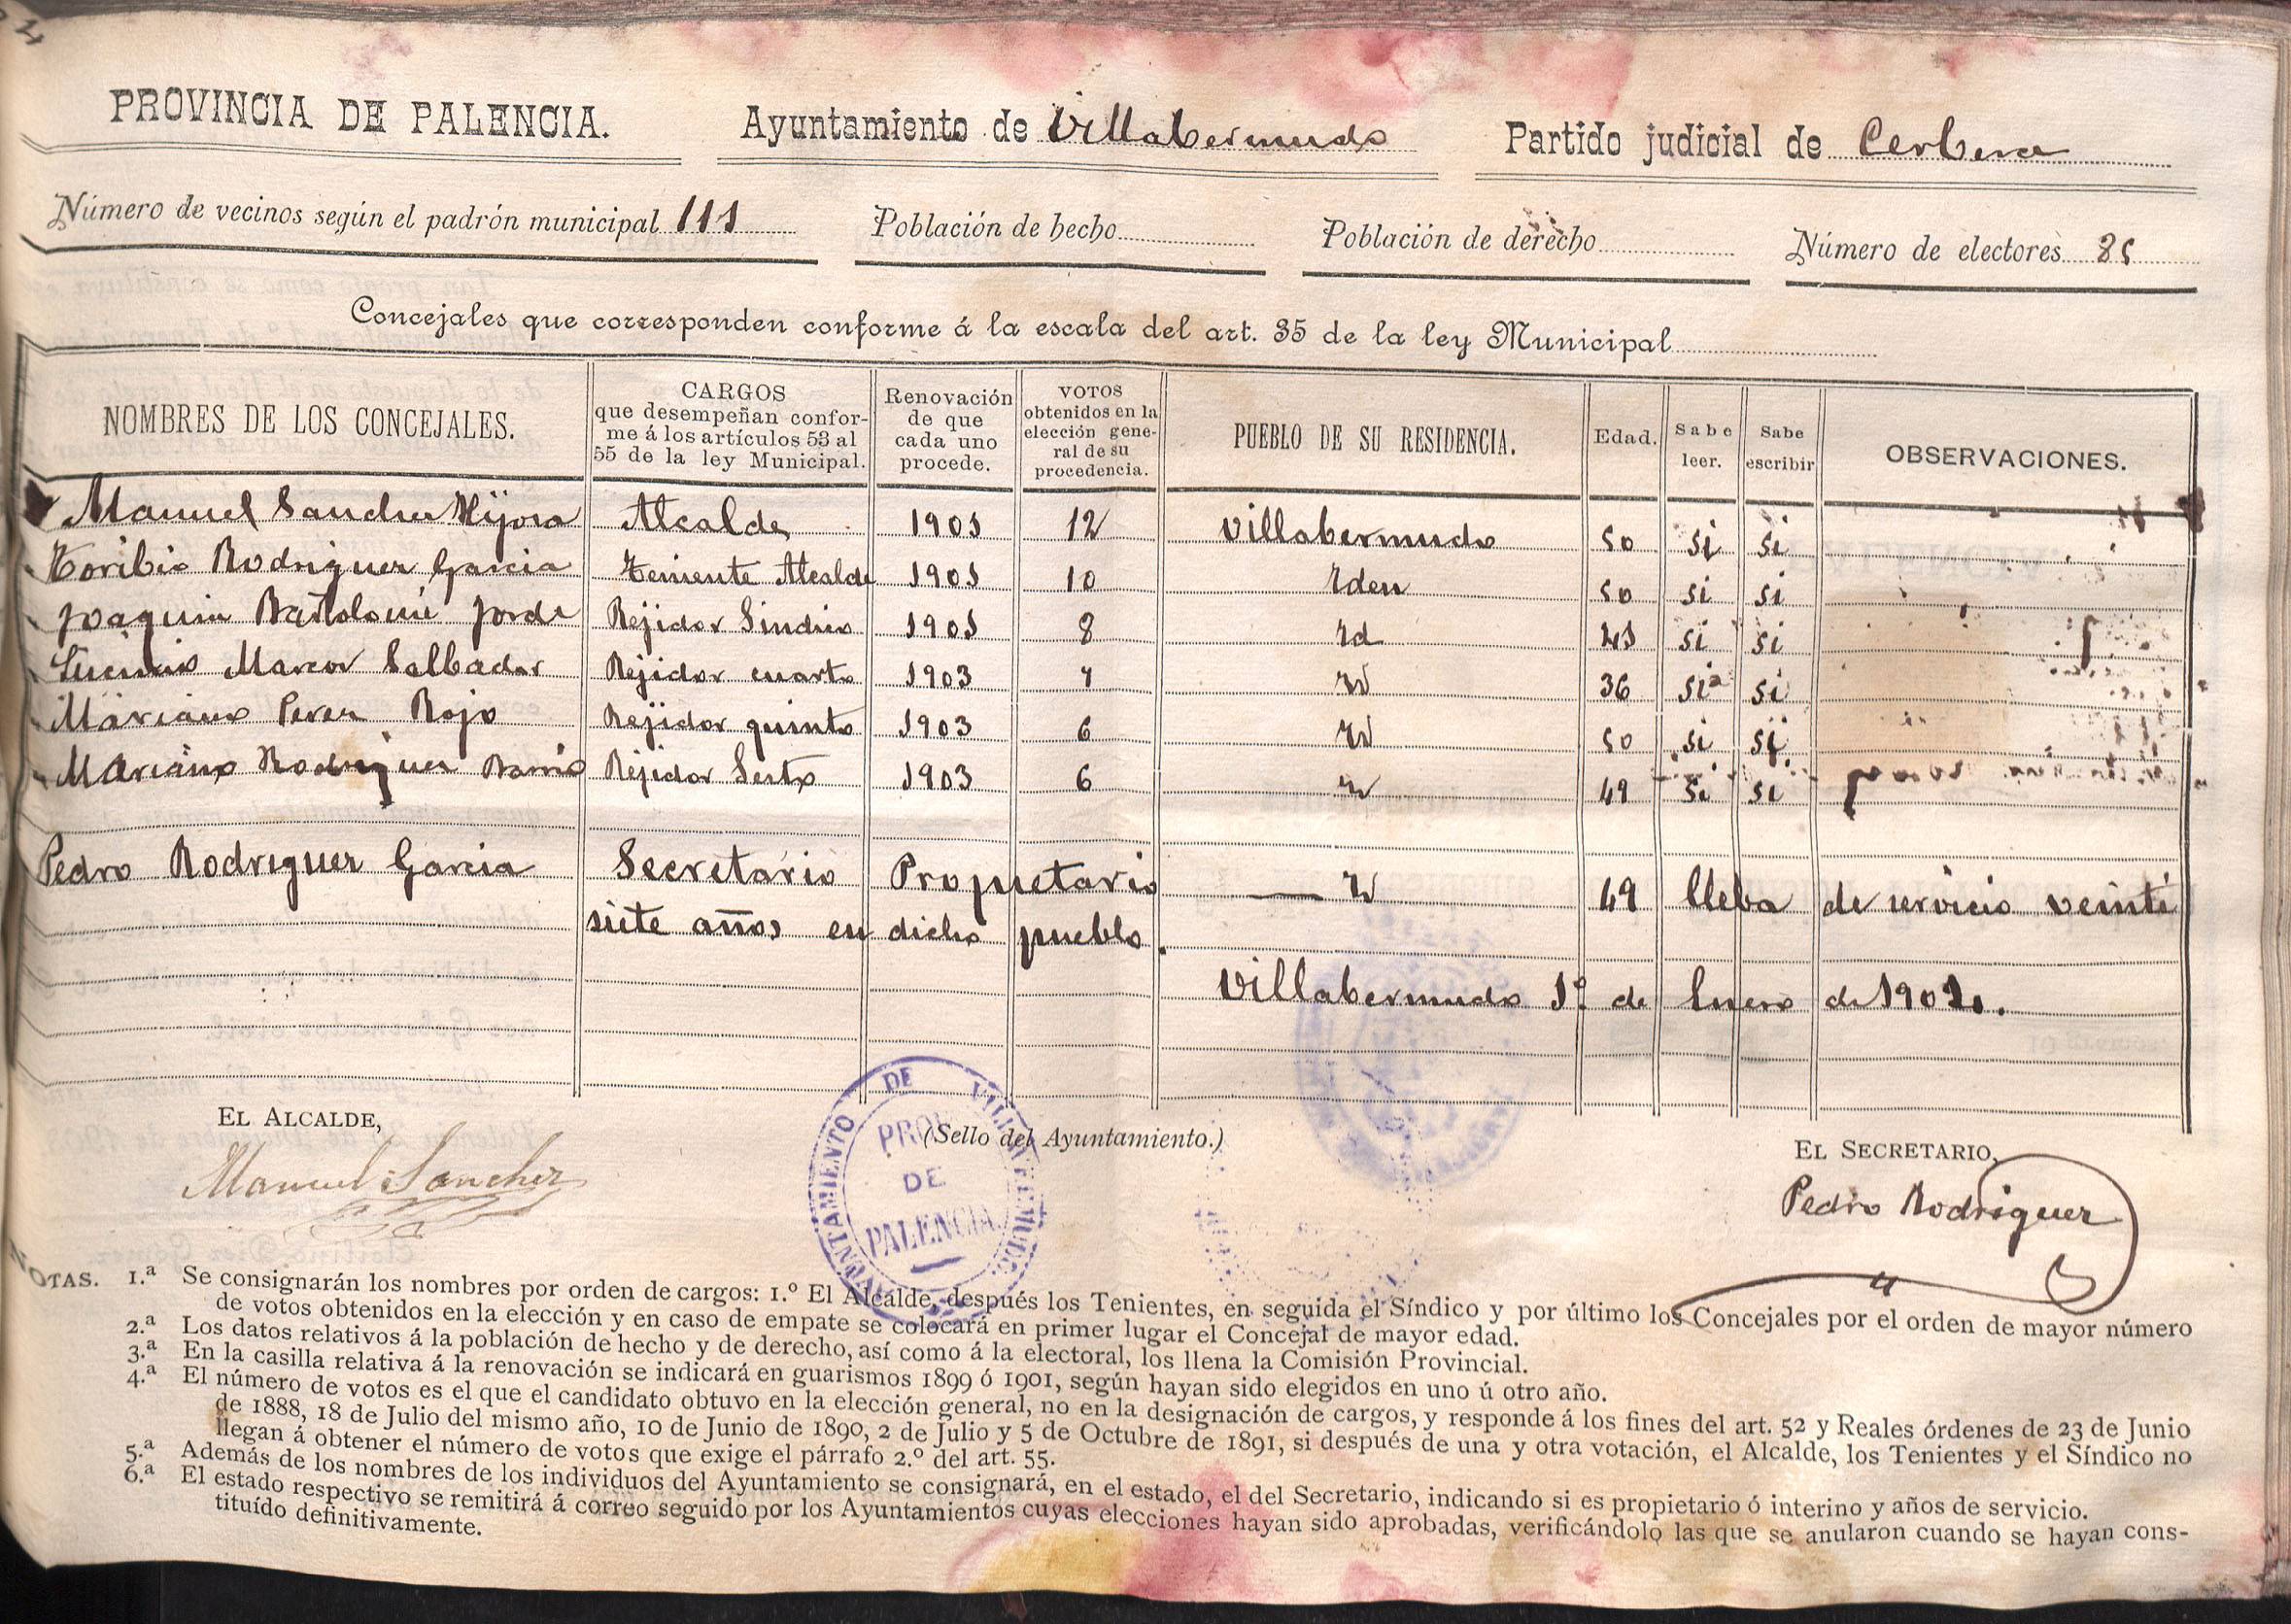 PROVINCIA DE PALENCIA. Ayuntamiento de Villabermudo Partido judicial de Cerbera
Número de vecinos según el padrón municipal 111 Población de hecho Población de derecho Número de electores 85
Concejales que corresponden conforme á la escala del art. 35 de la ley Municipal
NOMBRES DE LOS CONCEJALES. CARGOS que desempeñan confor- me á los artículos 53 al 55 de la ley Municipal. Renovación de que cada uno procede. VOTOS obtenidos en la elección gene- ral de su procedencia. PUEBLO DE SU RESIDENCIA. Edad. Sabe leer. Sabe escribir OBSERVACIONES.
Manuel Sanchez Hijosa Alcalde 1905 12 Villabermudo 50 si si
Toribio Rodriguez Garcia Teniente Alcalde 1905 10 Iden 50 si si
Joaquin Bartolomé Jorde Rejidor Sindico 1905 8 Id 45 si si
Marcos Salbador Rejidor cuarto 1903 7 Id 36 si si
Mariano Perez Rojo Rejidor quinto 1903 6 Id 50 si si
Mariano Rodriguez Barrio Rejidor Sesto 1903 6 Id 49 si si
Pedro Rodriguez Garcia Secretario Propietario Id 49 lleba de servicio veinti
siete años en dicho pueblo.
Villabermudo 1º de Enero de
EL ALCALDE,
Manuel Sanchez
(Sello del Ayuntamiento.)
AYUNTAMIENTO DE VILLABERMUDO
PROV
DE
PALENCIA
EL SECRETARIO,
Pedro Rodriguez
NOTAS. 1.ª Se consignarán los nombres por orden de cargos: 1.º El Alcalde, después los Tenientes, en seguida el Síndico y por último los Concejales por el orden de mayor número
de votos obtenidos en la elección y en caso de empate se colocará en primer lugar el Concejal de mayor edad.
2.ª Los datos relativos á la población de hecho y de derecho, así como á la electoral, los llena la Comisión Provincial.
3.ª En la casilla relativa á la renovación se indicará en guarismos 1899 ó 1901, según hayan sido elegidos en uno ú otro año.
4.ª El número de votos es el que el candidato obtuvo en la elección general, no en la designación de cargos, y responde á los fines del art. 52 y Reales órdenes de 23 de Junio
de 1888, 18 de Julio del mismo año, 10 de Junio de 1890, 2 de Julio y 5 de Octubre de 1891, si después de una y otra votación, el Alcalde, los Tenientes y el Síndico no
llegan á obtener el número de votos que exige el párrafo 2.º del art. 55.
5.ª Además de los nombres de los individuos del Ayuntamiento se consignará, en el estado, el del Secretario, indicando si es propietario ó interino y años de servicio.
6.ª El estado respectivo se remitirá á correo seguido por los Ayuntamientos cuyas elecciones hayan sido aprobadas, verificándolo las que se anularon cuando se hayan cons-
tituído definitivamente.